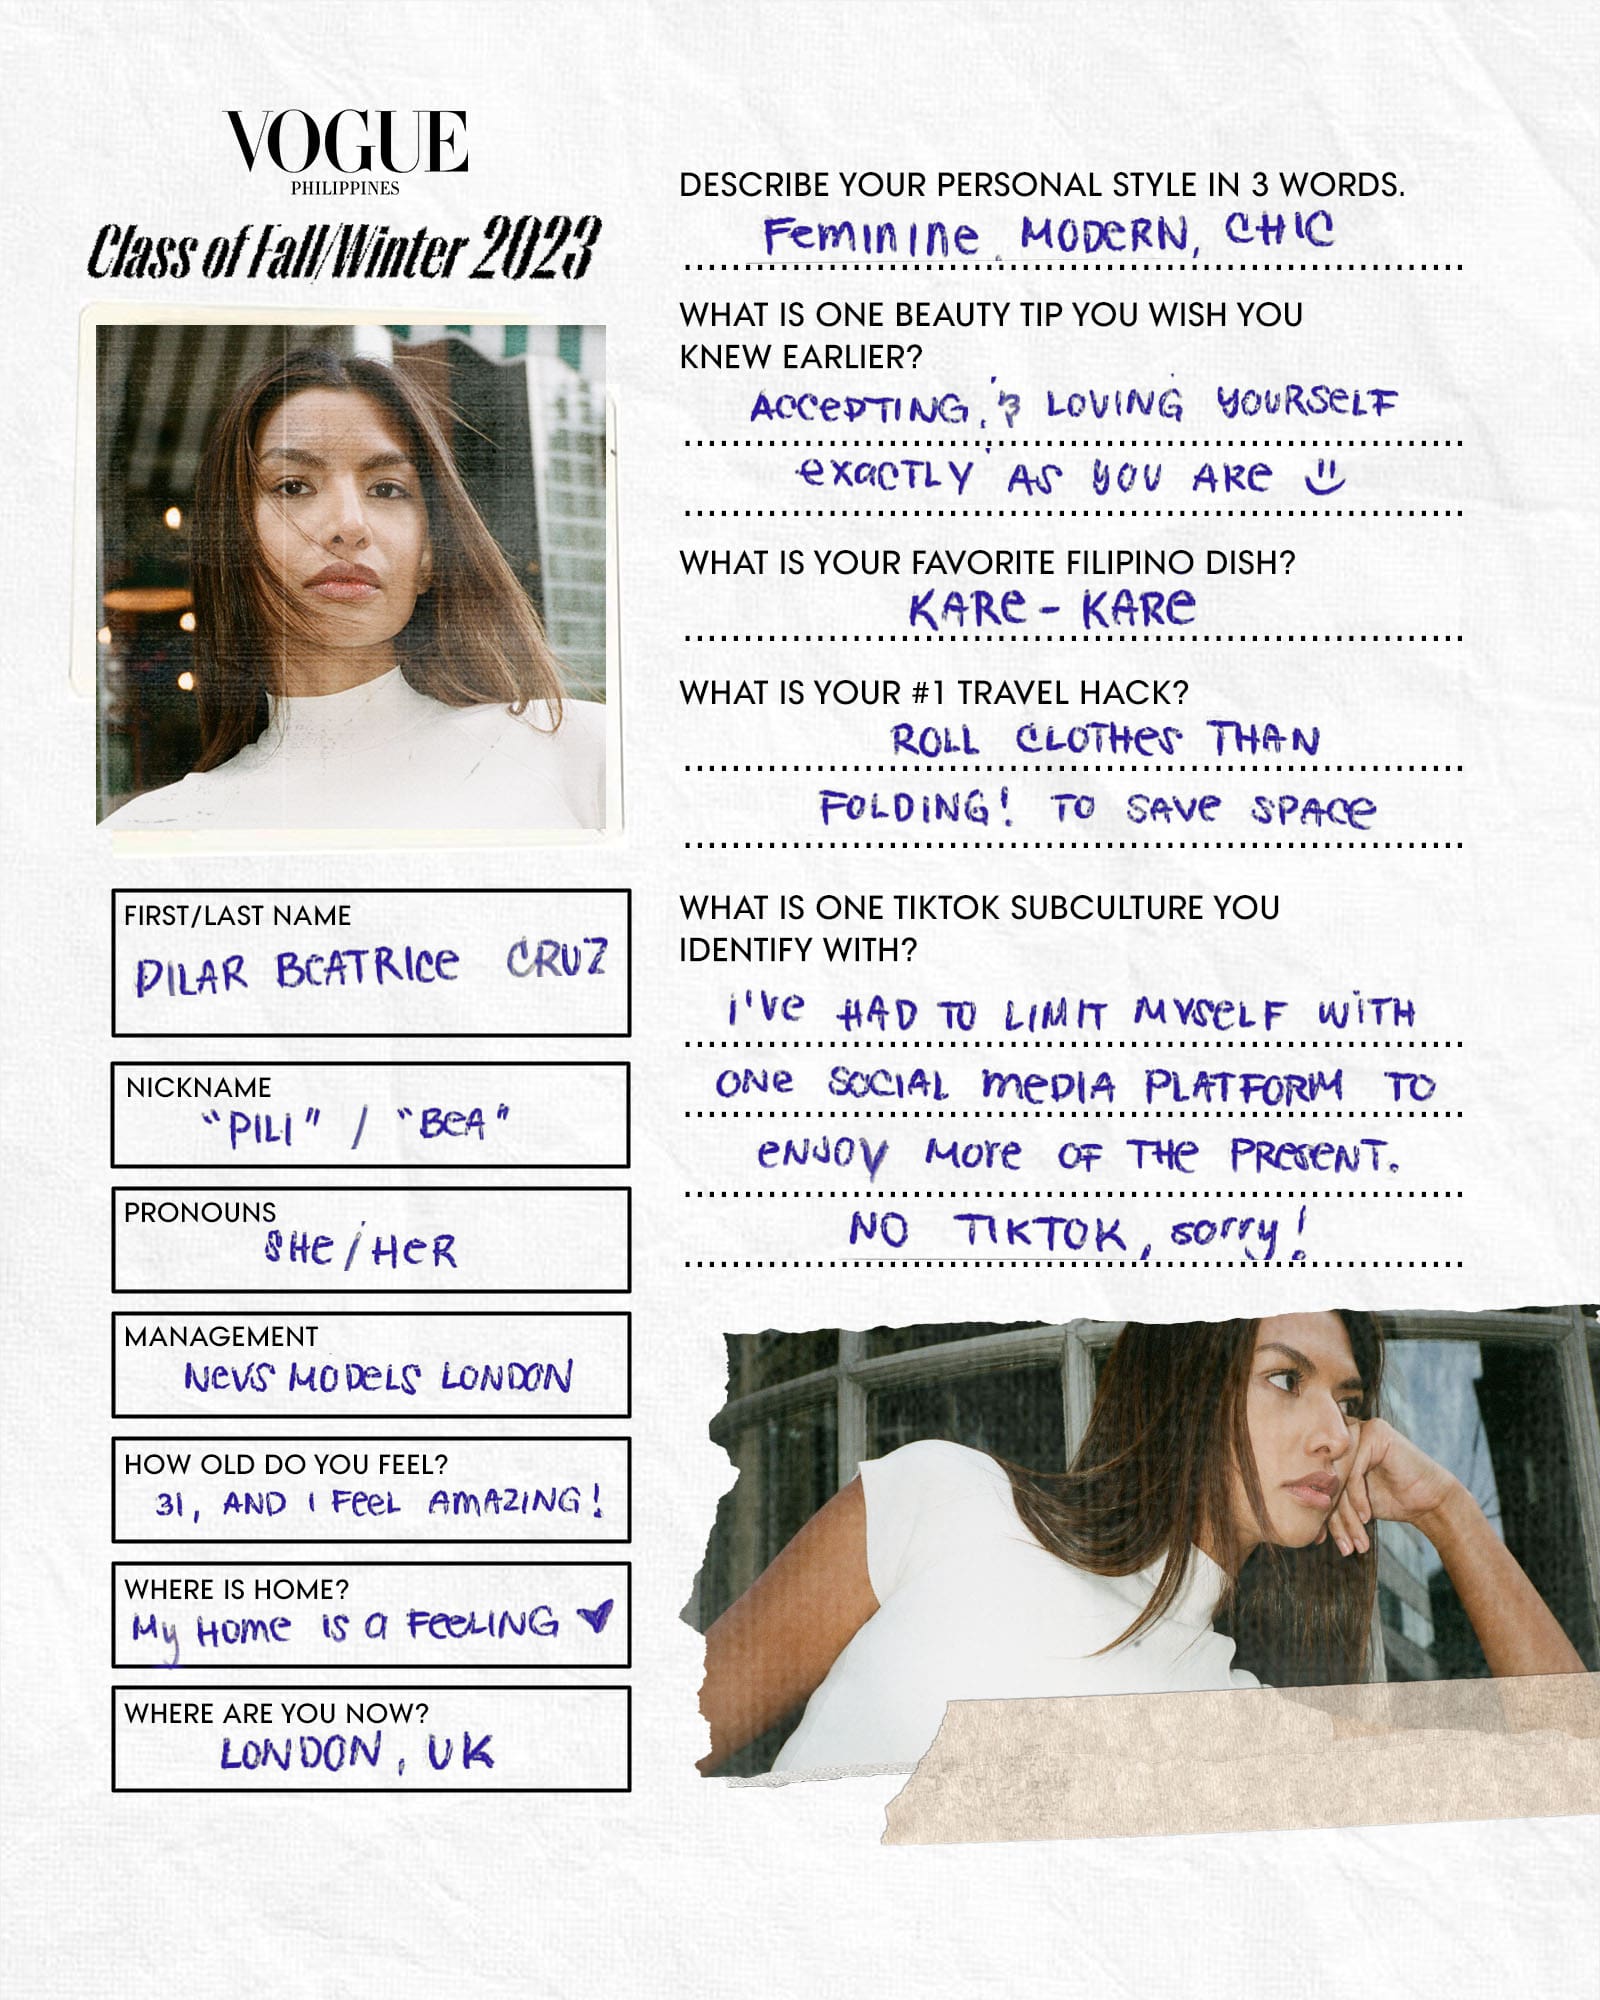 VOGUE
PHILIPPINES
Class of Fall/Winter 2023
FIRST/LAST NAME
PILAR BEATRICE CRUZ
NICKNAME
"PILI" / "BEA"
PRONOUNS
SHE/HER
MANAGEMENT
NEVS MODELS LONDON
HOW OLD DO YOU FEEL?
31, AND I FEEL AMAZING!
WHERE IS HOME?
My HOME IS A FEELING ♥
WHERE ARE YOU NOW?
LONDON, UK
DESCRIBE YOUR PERSONAL STYLE IN 3 WORDS.
Feminine, MODERN, CHIC
WHAT IS ONE BEAUTY TIP YOU WISH YOU
KNEW EARLIER?
ACCEPTING, & LOVING YOURSELF
EXACTLY AS YOU ARE
WHAT IS YOUR FAVORITE FILIPINO DISH?
KARE-KARE
WHAT IS YOUR #1 TRAVEL HACK?
ROLL CLOTHES THAN
FOLDING! TO SAVE SPACE
WHAT IS ONE TIKTOK SUBCULTURE YOU
IDENTIFY WITH?
I'VE HAD TO LIMIT MYSELF WITH
ONE SOCIAL MEDIA PLATFORM TO
ENJOY MORE OF THE PRESENT.
NO TIKTOK, sorry!